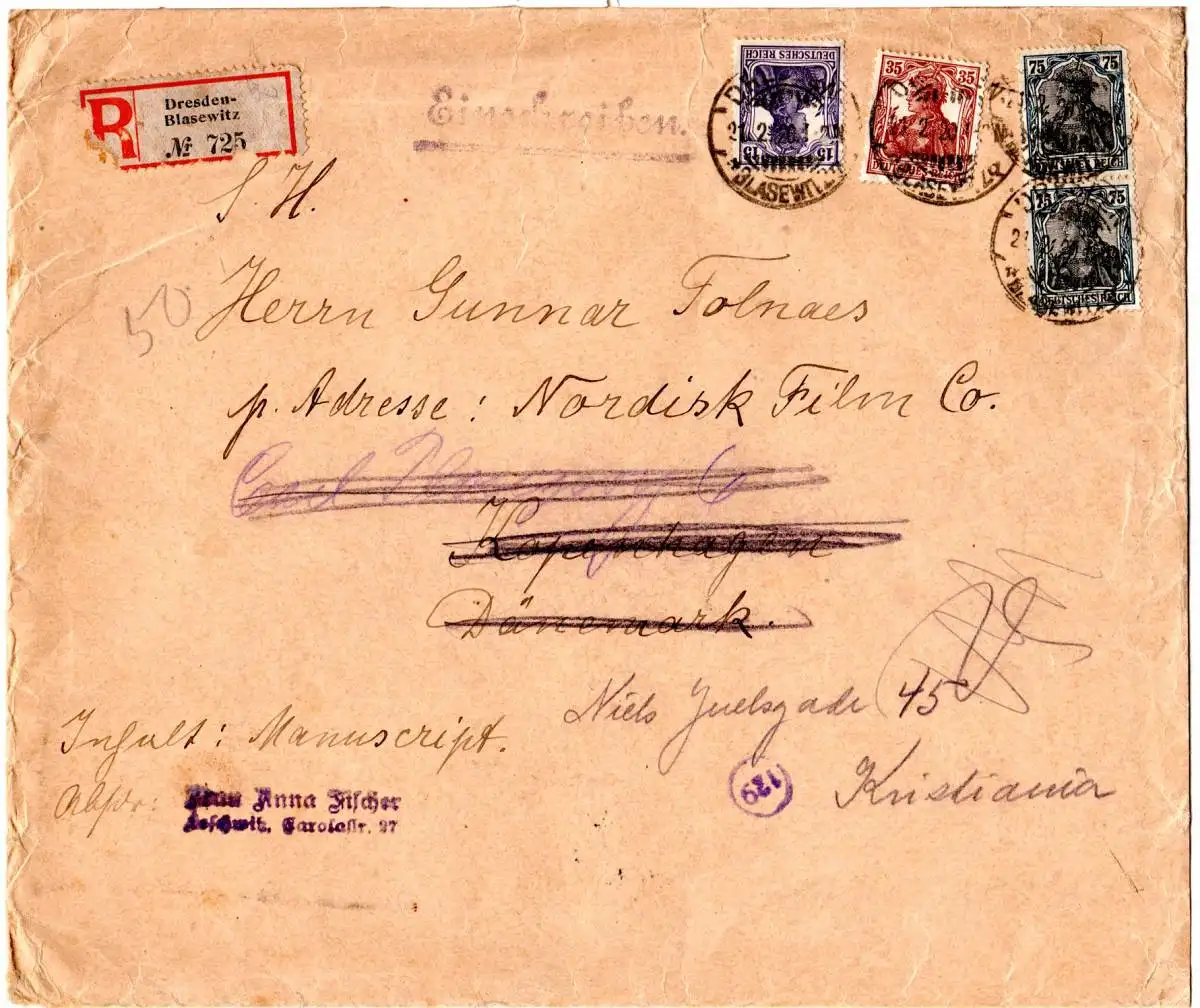 R
Dresden-
Blasewitz
№ 725
Einschreiben.
15 15
DEUTSCHES REICH
35 35
75 75
DEUTSCHES REICH
75 75
DEUTSCHES REICH
BLASEWITZ
S. H.
50
Herrn Gunnar Tolnaes
p. Adresse: Nordisk Film Co.
Kopenhagen
Dänemark.
Niels Juelsgade 45
Kristiania
129
Inhalt: Manuscript.
Absdr:
Frau Anna Fischer
Loschwitz, Carolastr. 27